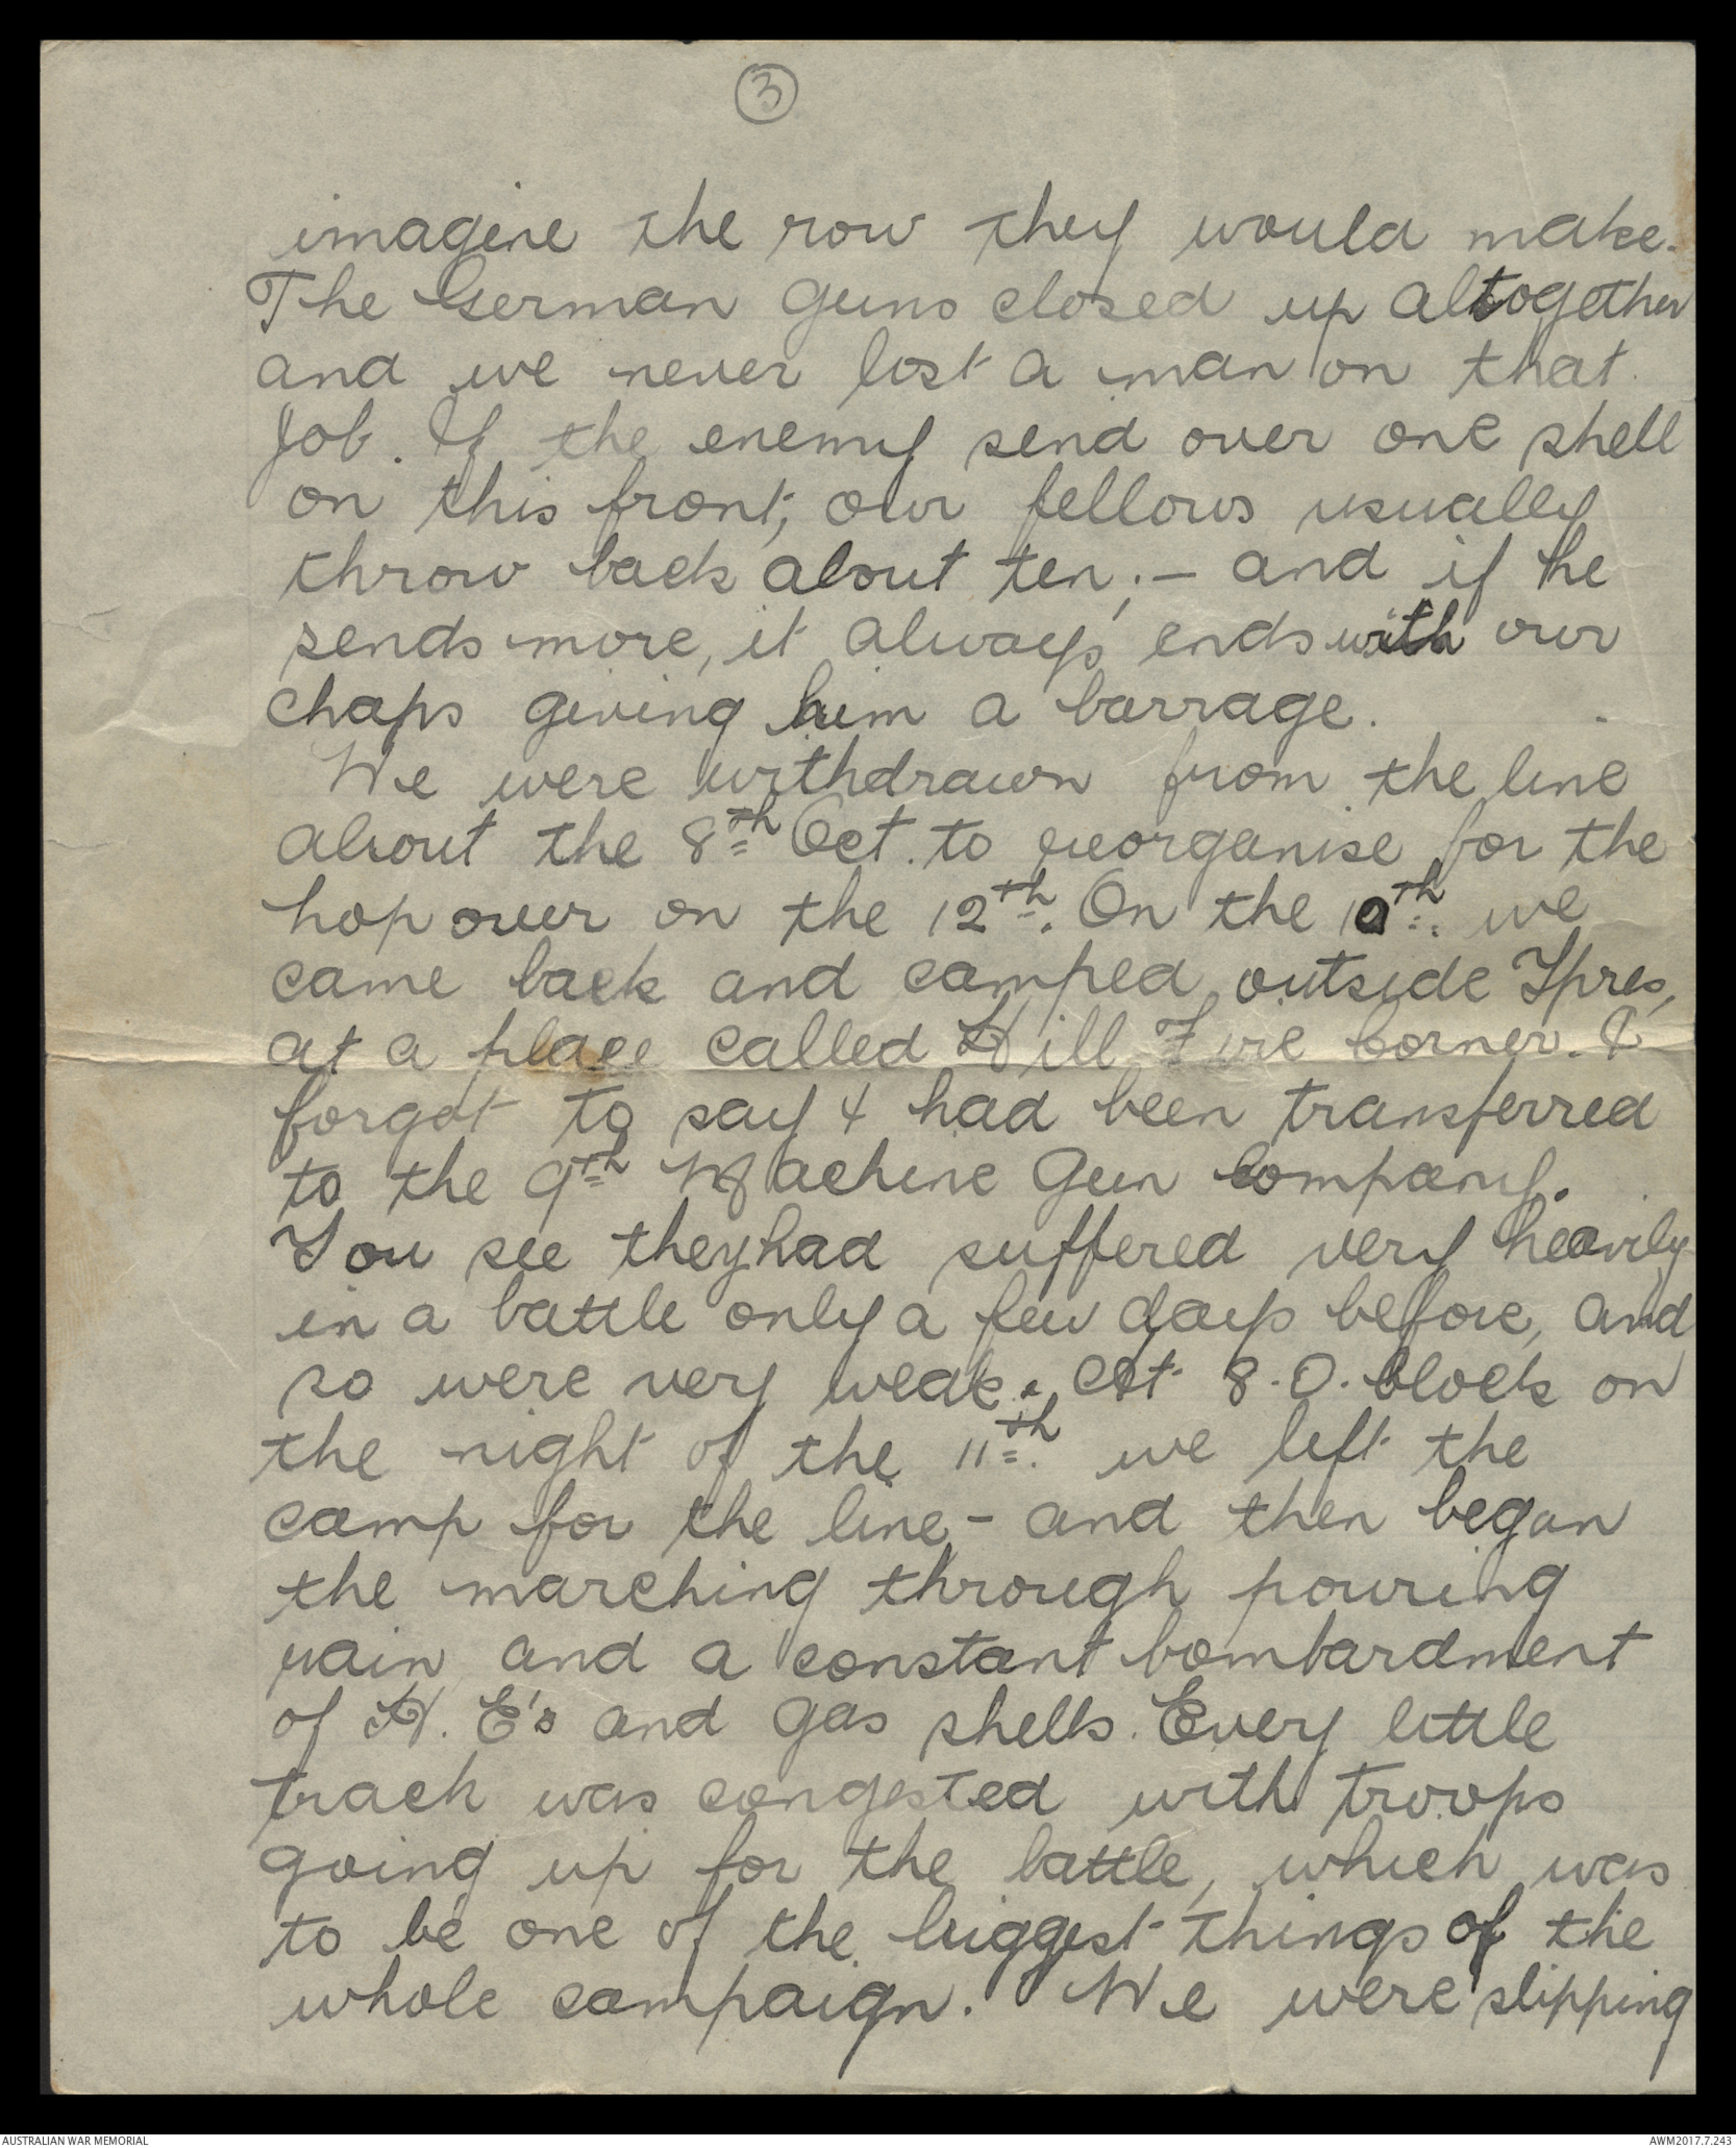 3
imagine the row they would make.
The German guns closed up altogether
and we never lost a man on that
Job. If the enemy send over one shell
on this front, our fellows usually
throw back about ten; - and if he
sends more, it always ends with our
chaps giving him a barrage.
We were withdrawn from the line
about the 8th Oct. to reorganise for the
hop over on the 12th. On the 10th we
came back and camped outside Ypres,
at a place called Hill Fire Corner. I
forgot to say I had been transferred
to the 9th Machine Gun Company.
You see they had suffered very heavily
in a battle only a few days before, and
so were very weak. At 8. O. Clock on
the night of the 11th. we left the
camp for the line - and then began
the marching through pouring
rain and a constant bombardment
of H. E's and gas shells. Every little
track was congested with troops
going up for the battle, which was
to be one of the biggest things of the
whole campaign. We were slipping
AUSTRALIAN WAR MEMORIAL
AWM2017.7.243